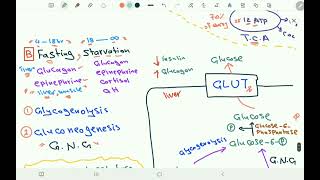 4-18hr 18-∞
B Fasting, Starvation
liver Glucagon Glucagon
epinephrine epinephrine
liver, muscle cortisol
GH
① Glycogenolysis
② Gluconeogenesis
G.N.G
70%
or 12 ATP
T.C.A
↓ Insulin
↑ Glucagon
Glucose
liver
GLUT
Glucose
P Glucose-6-
Phosphatase
Glycogenolysis
Glucose-6-P
G.N.G